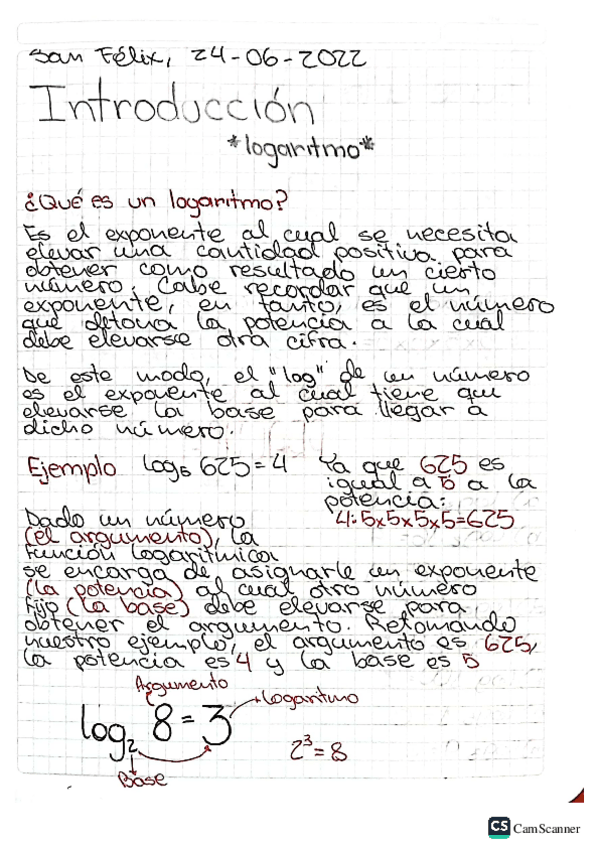 San Félix, 24-06-2022
Introducción
*logaritmo*
¿Qué es un logaritmo?
Es el exponente al cual se necesita
elevar una cantidad positiva para
obtener como resultado un cierto
número. Cabe recordar que un
exponente, en tanto, es el número
que detona la potencia a la cual
debe elevarse otra cifra.
De este modo, el "log" de un número
es el exponente al cual tiene que
elevarse la base para llegar a
dicho número.
Ejemplo log₅ 625 = 4 Ya que 625 es
igual a 5 a la
potencia:
4: 5x5x5x5=625
Dado un número
(el argumento), la
función logarítmica
se encarga de asignarle un exponente
(la potencia) al cual otro número
fijo (la base) debe elevarse para
obtener el argumento. Retomando
nuestro ejemplo, el argumento es 625,
la potencia es 4 y la base es 5
Argumento
Logaritmo
log₂ 8 = 3
2³ = 8
Base
CS CamScanner